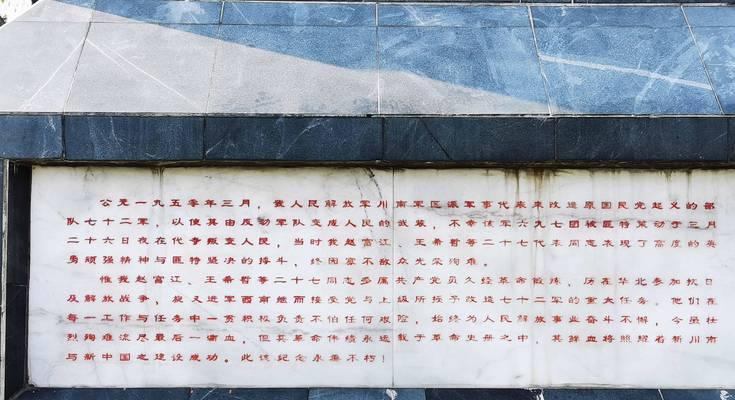 公元一九五零年三月，我人民解放军川南军区派军事代表来改造原国民党起义的部
队七十二军，以使其由反动军队变成人民的武装，不幸该军六九七团被匪特策动于三月
二十六日夜在代争叛变人民，当时我赵富江、王希哲等二十七代表同志表现了高度的英
勇顽强精神与匪特坚决的搏斗，终因寡不敌众光荣殉难。
惟我赵富江、王希哲等二十七同志多属共产党员久经革命锻炼，历在华北参加抗日
及解放战争，旋又进军西南继而接受党与上级所授予改造七十二军的重大任务。他们在
每一工作与任务中一贯积极负责不怕任何艰险，始终为人民解放事业奋斗不懈，今虽壮
烈殉难流尽最后一滴血，但其革命伟绩永远载于革命史册之中，其鲜血将照耀着新川南
与新中国之建设成功。此谨纪念永垂不朽！